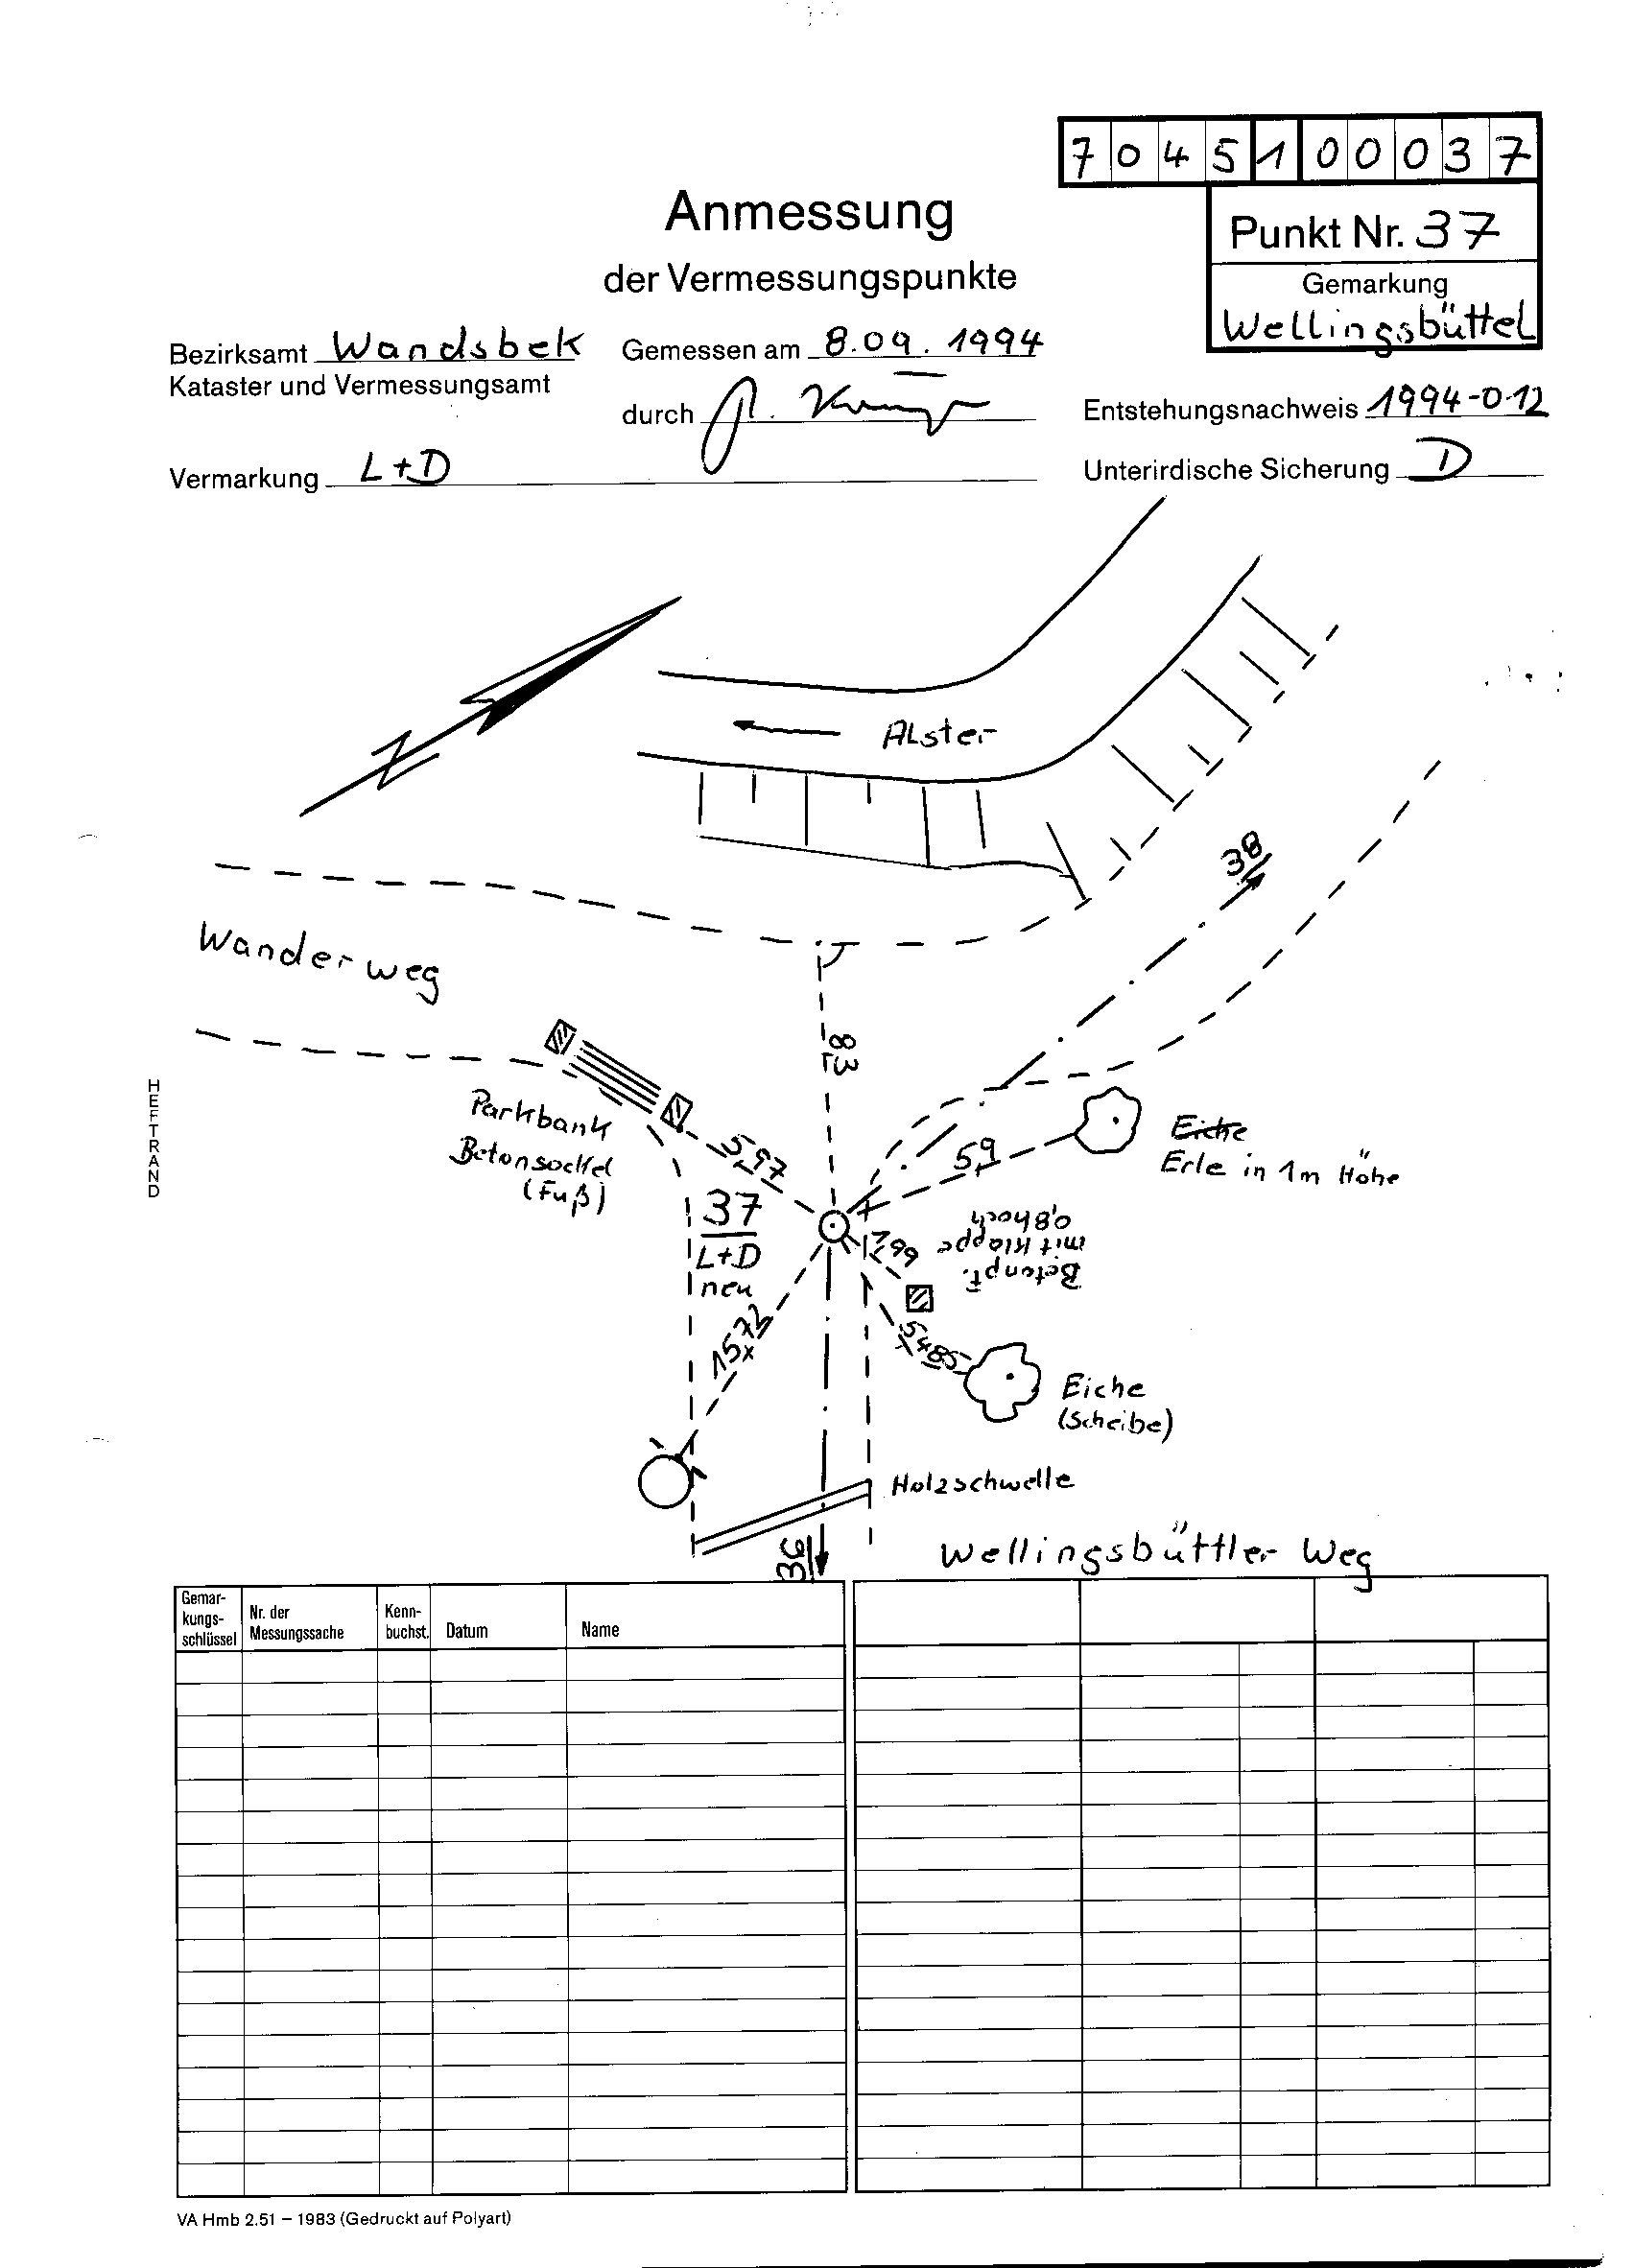 7 0 4 5 1 0 0 0 3 7
Anmessung
der Vermessungspunkte
Punkt Nr. 37
Gemarkung
Wellingsbüttel
Bezirksamt Wandsbek
Kataster und Vermessungsamt
Gemessen am 8.09.1994
durch
Entstehungsnachweis 1994-012
Vermarkung L+D
Unterirdische Sicherung D
Alster
38
Wanderweg
83
HEFTRAND
Parkbank
Betonsockel
(Fuß)
5,97
5,9
Eiche
Erle in 1m Höhe
37
L+D
neu
1,299
Betonpf.
mit Klappe
0,8 hoch
1572
5485
Eiche
(Scheibe)
Holzschwelle
36
Wellingsbüttler Weg
Gemar-
kungs-
schlüssel
Nr. der
Messungssache
Kenn-
buchst.
Datum
Name
VA Hmb 2.51 – 1983 (Gedruckt auf Polyart)